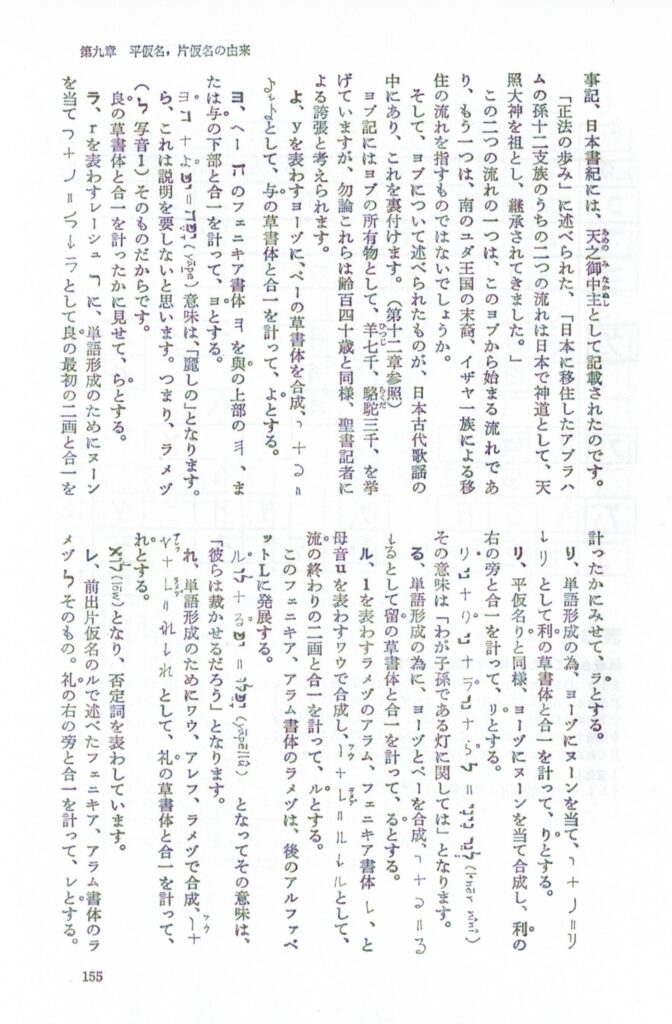 第九章　平仮名，片仮名の由来
事記、日本書紀には、天之御中主として記載されたのです。
「正法の歩み」に述べられた、「日本に移住したアブラハ
ムの孫十二支族のうちの二つの流れは日本で神道として、天
照大神を祖とし、継承されてきました。」
この二つの流れの一つは、このヨブから始まる流れであ
り、もう一つは、南のユダ王国の末裔、イザヤ一族による移
住の流れを指すものではないでしょうか。
そして、ヨブについて述べられたものが、日本古代歌謡の
中にあり、これを裏付けます。（第十二章参照）
ヨブ記にはヨブの所有物として、羊七千、駱駝三千、を挙
げていますが、勿論これらは齢百四十歳と同様、聖書記者に
よる誇張と考えられます。
よ、yを表わすヨーヅに、ペーの草書体を合成、
として、与の草書体と合一を計って、よとする。
ヨ、ヘーのフェニキア書体ヨを與の上部のヨ、ま
たは与の下部と合一を計って、ヨとする。
ヨ＋よ (yāpe) 意味は、「麗しの」となります。
ら、これは説明を要しないと思います。つまり、ラメヅ
（写音l）そのものだからです。
良の草書体と合一を計ったかに見せて、らとする。
ラ、rを表わすレーシュに、単語形成のためにヌーン
を当てとして良の最初の二画と合一を
計ったかにみせて、ラとする。
り、単語形成の為、ヨーヅにヌーンを当て、
として利の草書体と合一を計って、りとする。
リ、平仮名りと同様、ヨーヅにヌーンを当て合成し、利の
右の旁と合一を計って、リとする。
その意味は「わが子孫である灯に関しては」となります。
る、単語形成の為に、ヨーヅとペーを合成、
るとして留の草書体と合一を計って、るとする。
ル、lを表わすラメヅのアラム、フェニキア書体、と
母音uを表わすワウで合成し、として、
流の終わりの二画と合一を計って、ルとする。
このフェニキア、アラム書体のラメヅは、後のアルファベ
ットLに発展する。
となってその意味は、
「彼らは裁かせるだろう」となります。
れ、単語形成のためにワウ、アレフ、ラメヅで合成、
として、礼の草書体と合一を計って、
れとする。
(lōw) となり、否定詞を表わしています。
レ、前出片仮名のルで述べたフェニキア、アラム書体のラ
メヅそのもの。礼の右の旁と合一を計って、レとする。
155